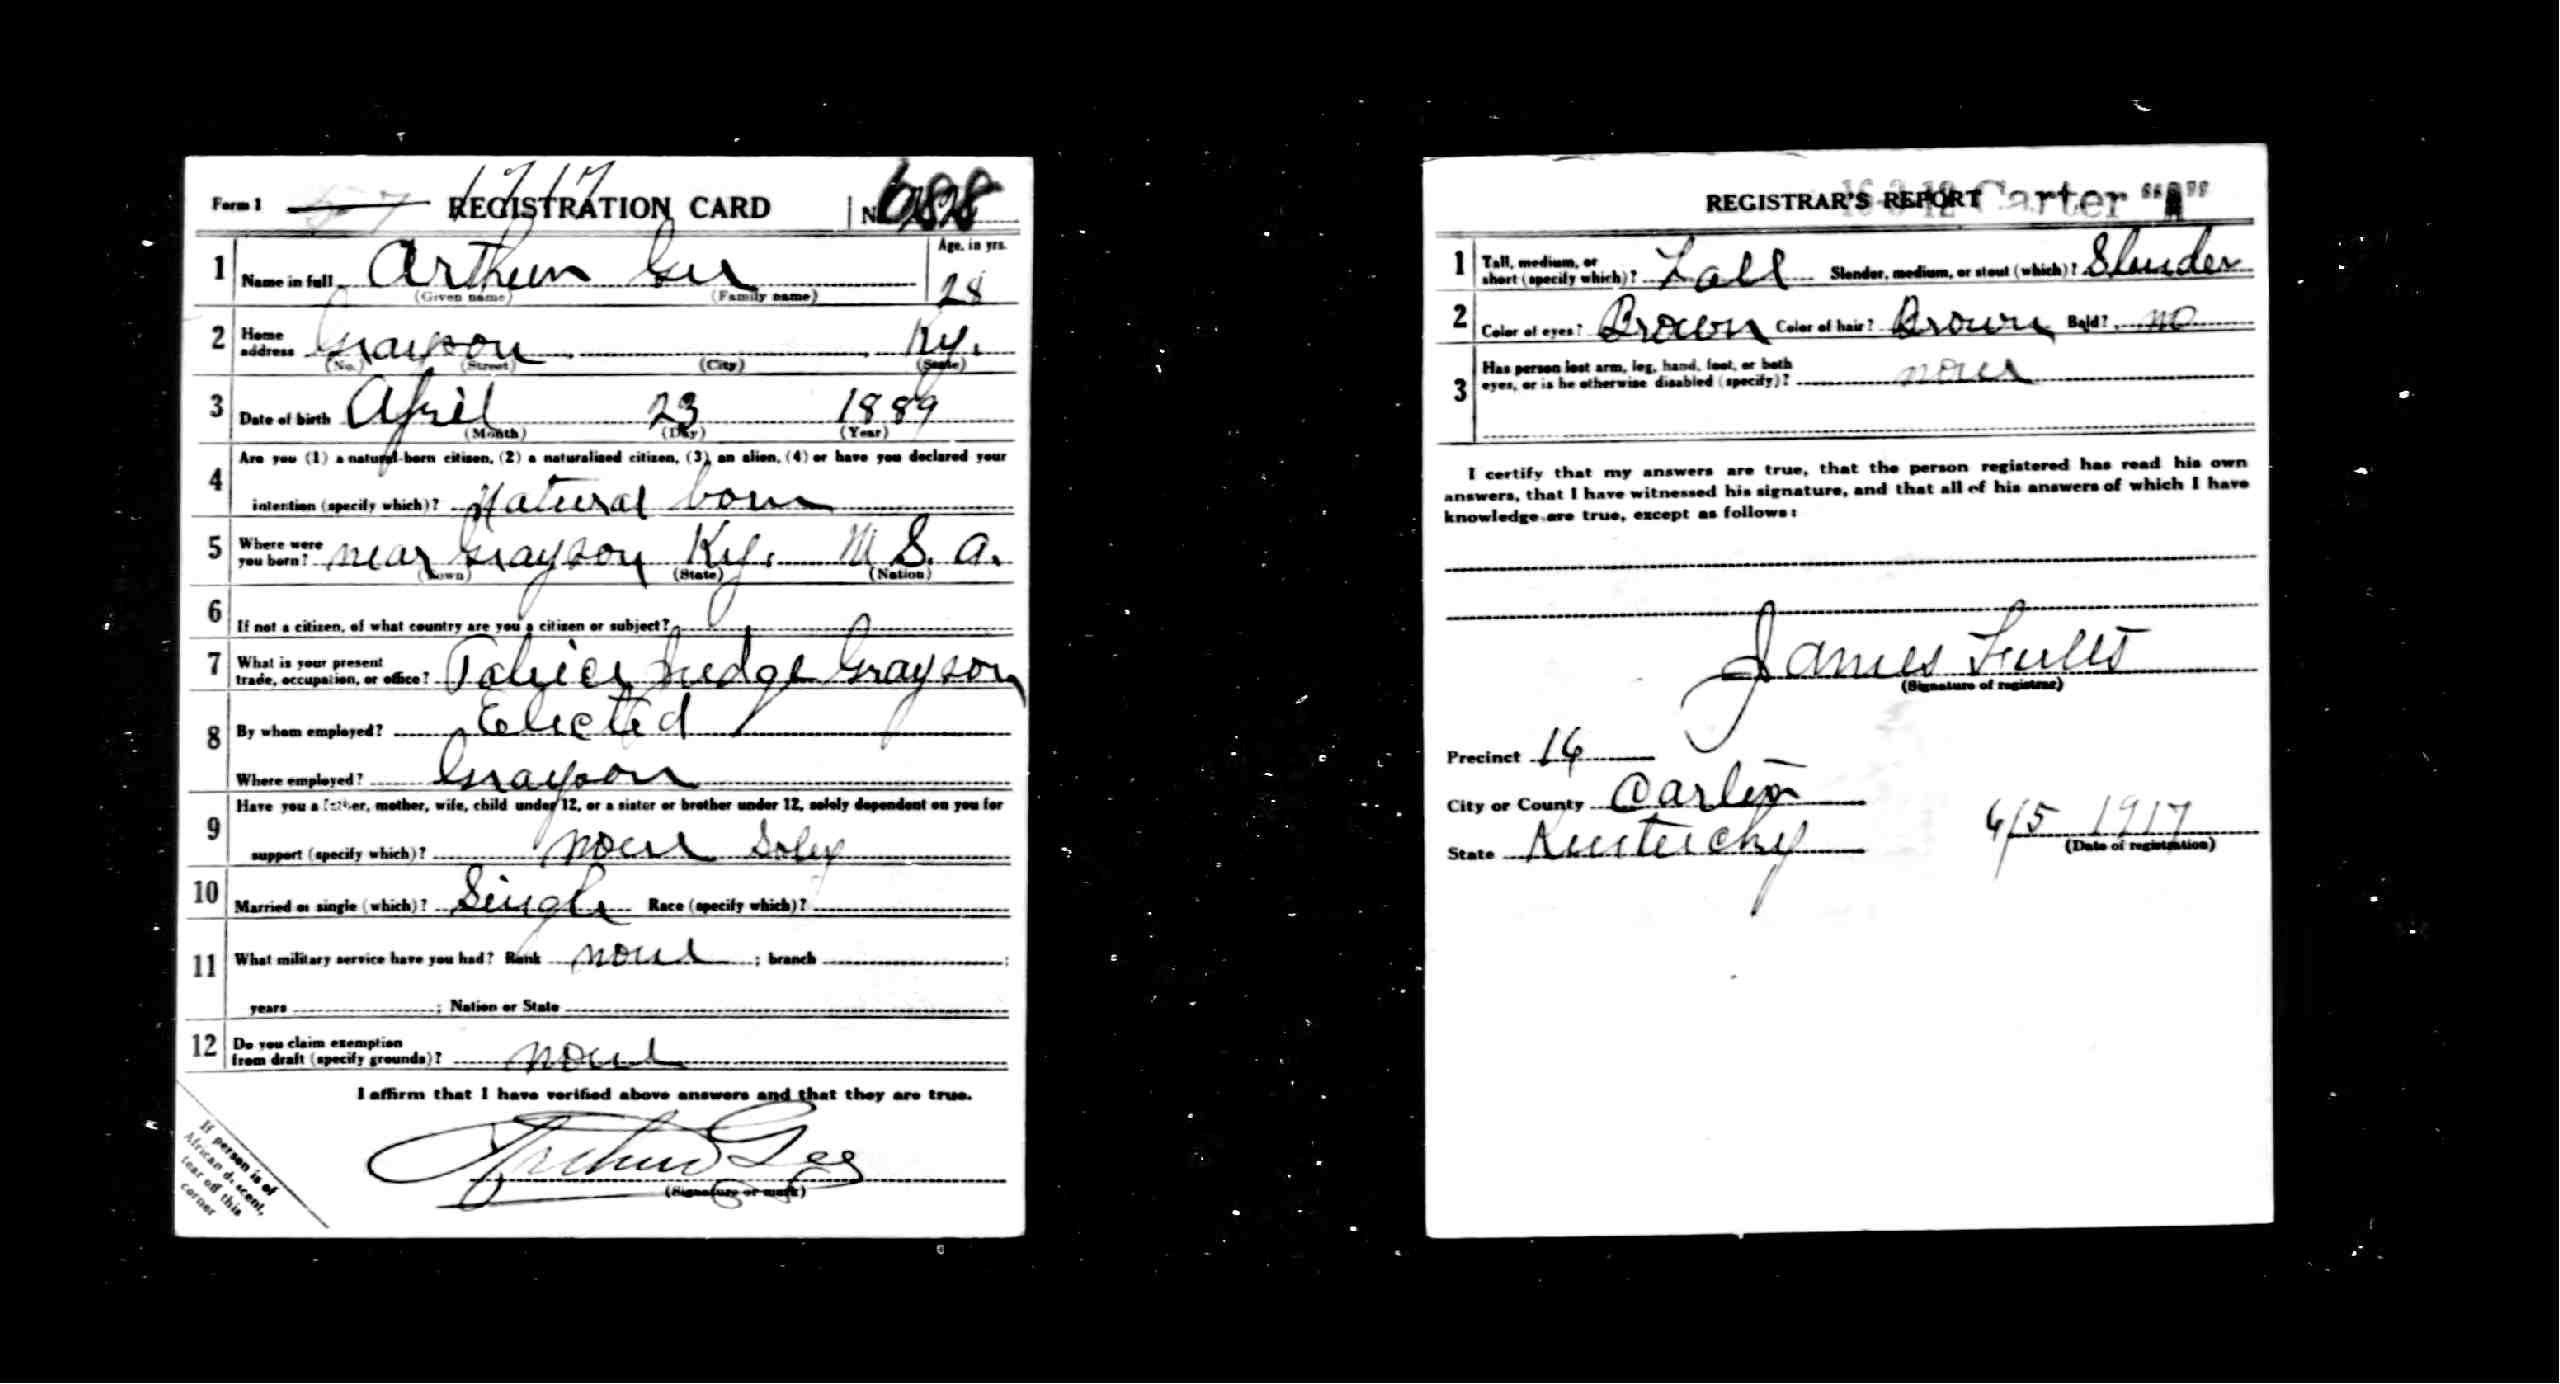 1717
Form 1 REGISTRATION CARD No. 688
1 Name in full Arthur Gee Age, in yrs. 28
(Given name) (Family name)
2 Home address Grayson Ky.
(No.) (Street) (City) (State)
3 Date of birth April 23 1889
(Month) (Day) (Year)
4 Are you (1) a natural-born citizen, (2) a naturalized citizen, (3) an alien, (4) or have you declared your
intention (specify which)? Natural born
5 Where were you born? near Grayson Ky. U.S.a.
(Town) (State) (Nation)
6 If not a citizen, of what country are you a citizen or subject?
7 What is your present
trade, occupation, or office? Police Judge Grayson
8 By whom employed? Elected
Where employed? Grayson
9 Have you a father, mother, wife, child under 12, or a sister or brother under 12, solely dependent on you for
support (specify which)? none Soley
10 Married or single (which)? Single Race (specify which)?
11 What military service have you had? Rank none ; branch ;
years ; Nation or State
12 Do you claim exemption
from draft (specify grounds)? none
I affirm that I have verified above answers and that they are true.
Arthur Gee
(Signature or mark)
If person is of
African descent,
tear off this
corner
REGISTRAR'S REPORT 16-3-12 Carter "A"
1 Tall, medium, or
short (specify which)? Tall Slender, medium, or stout (which)? Slender
2 Color of eyes? Brown Color of hair? Brown Bald? no
3 Has person lost arm, leg, hand, foot, or both
eyes, or is he otherwise disabled (specify)? none
I certify that my answers are true, that the person registered has read his own
answers, that I have witnessed his signature, and that all of his answers of which I have
knowledge are true, except as follows:
James Fults
(Signature of registrar)
Precinct 16
City or County Carter
State Kentucky
6/5 1917
(Date of registration)